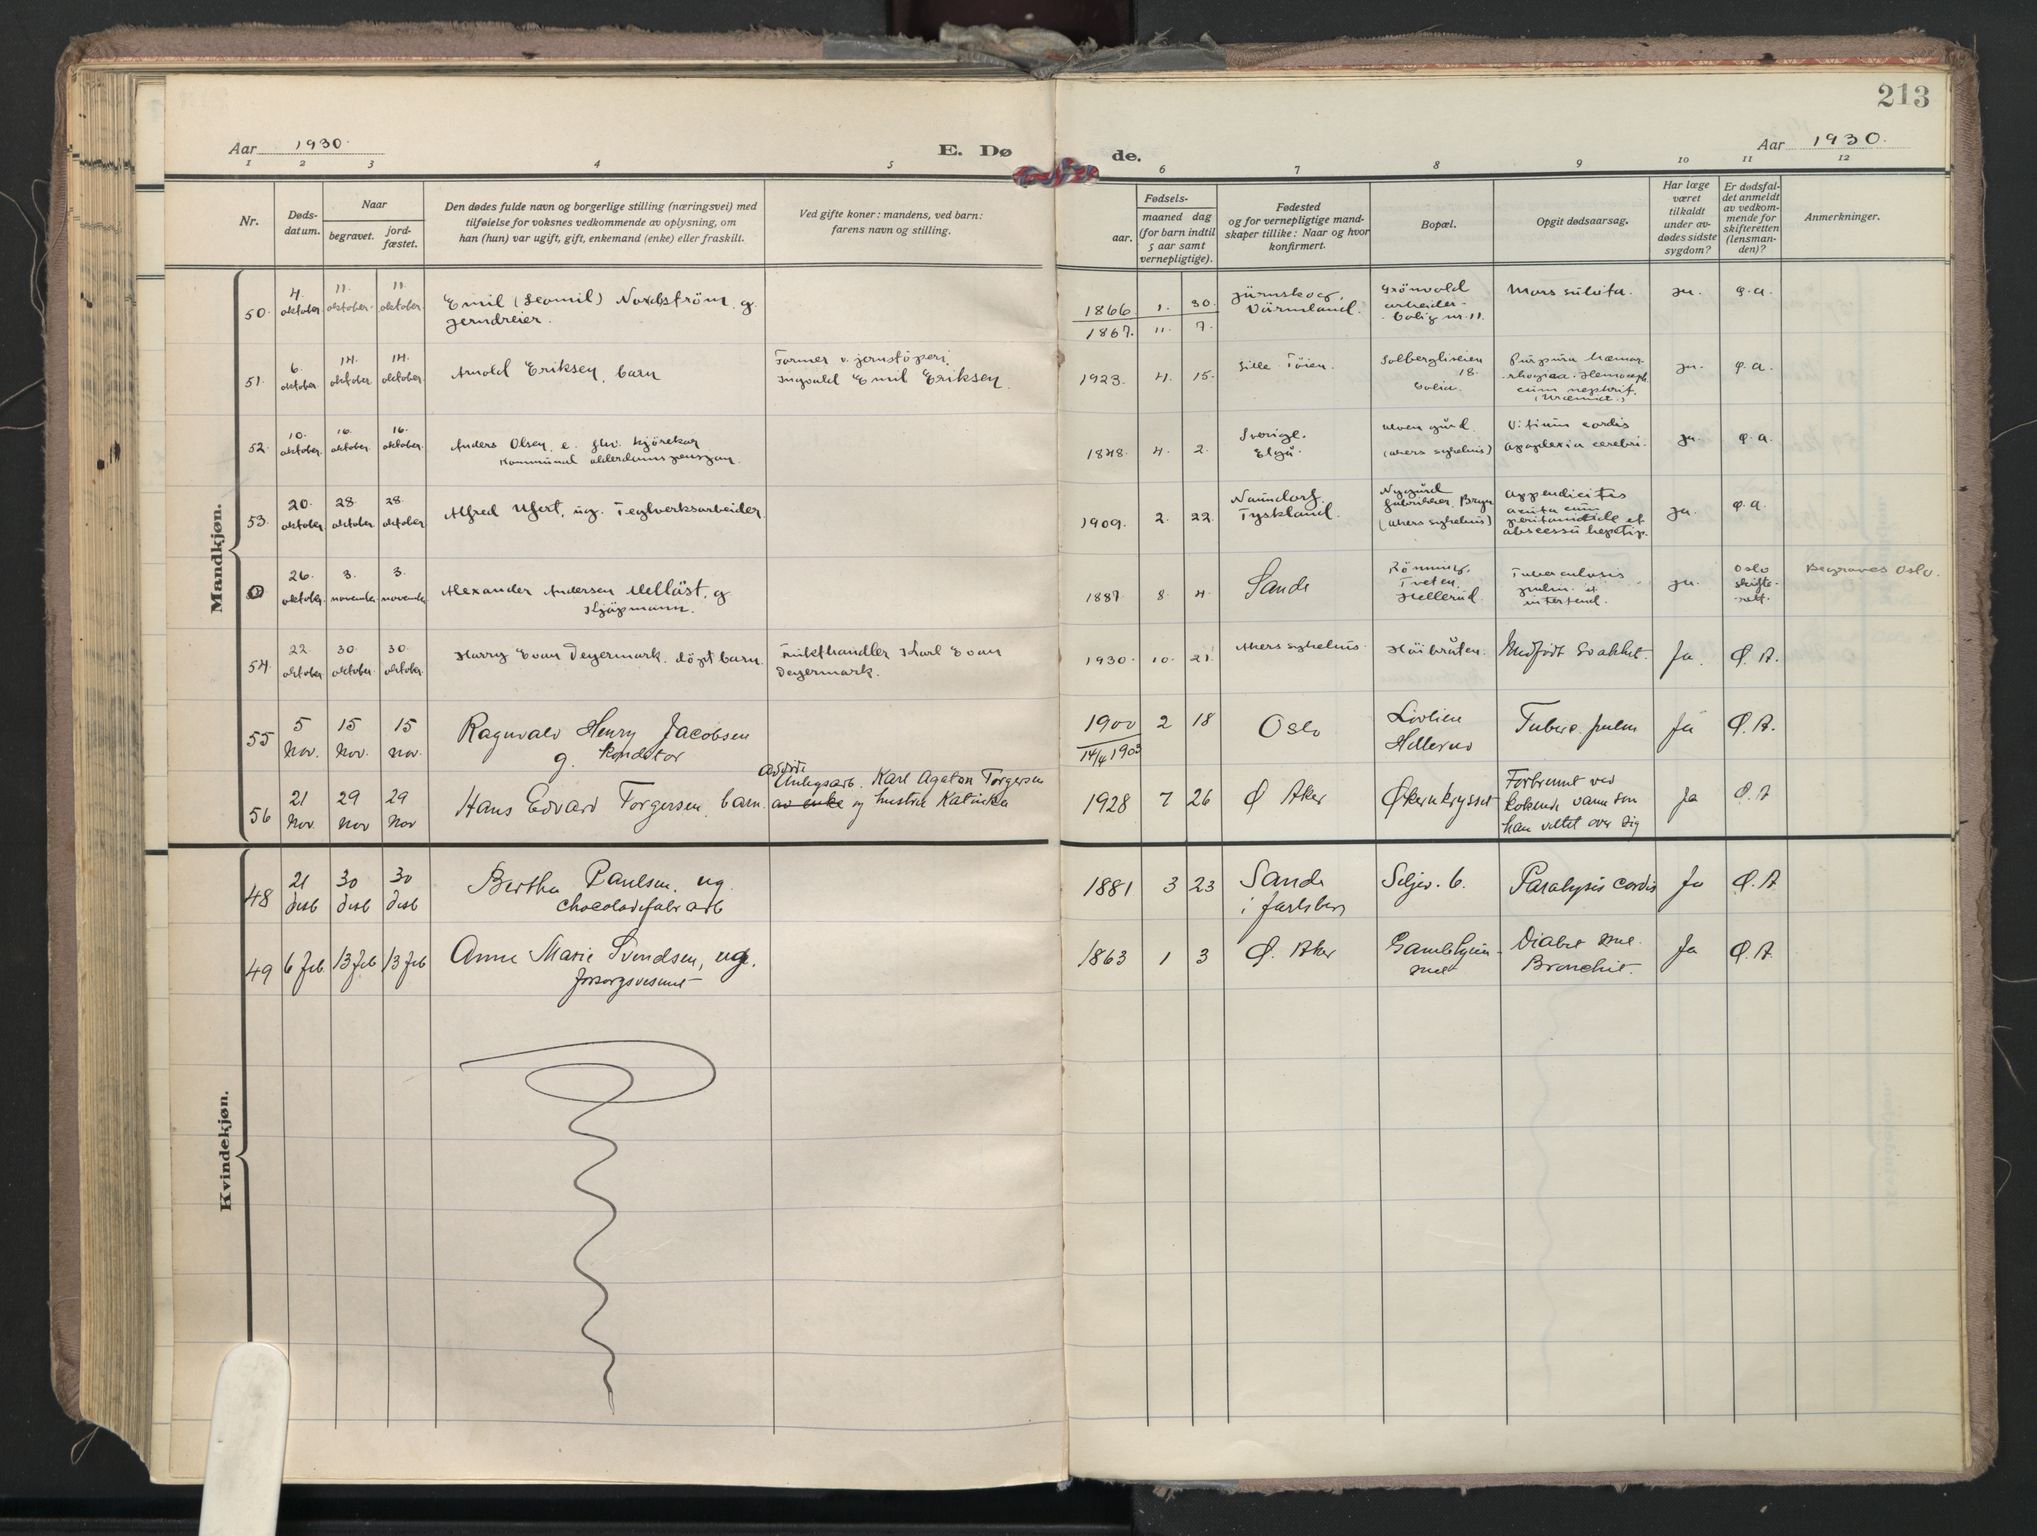 213
Aar 1930.
E. Dø
de.
Aar 1930.
1 2 3 4 5 6 7 8 9 10 11 12
Nr.
Døds-
datum.
Naar
begravet.
jord-
fæstet.
Den dødes fulde navn og borgerlige stilling (næringsvei) med
tilføielse for voksnes vedkommende av oplysning, om
han (hun) var ugift, gift, enkemand (enke) eller fraskilt.
Ved gifte koner: mandens, ved barn:
farens navn og stilling.
Fødsels-
aar.
maaned dag
(for barn indtil
5 aar samt
vernepligtige).
Fødested
og for vernepligtige mand-
skaper tillike: Naar og hvor
konfirmert.
Bopæl.
Opgit dødsaarsag.
Har læge
været
tilkaldt
under av-
dødes sidste
sygdom?
Er dødsfal-
det anmeldt
av vedkom-
mende for
skifteretten
(lensman-
den)?
Anmerkninger.
Mandkjøn.
50.
4.
oktober
11.
oktober.
11.
oktober
Emil (Leomil) Nordström, g.
jerndreier.
1866 1. 30.
1867. 11. 7.
Järnskog,
Värmland.
Grönvold
arbeider-
bolig nr. 11.
Mors subita.
ja.
Ø.A.
51.
6.
oktober.
14.
oktober
14.
oktober.
Arnold Eriksen, barn
Former v. jernstöperi
Ingvald Emil Eriksen.
1923. 4. 15.
Lille Töien.
Solbergliveien
18.
Purpura hæmor-
cum
ja.
Ø.A.
52.
10.
oktober.
16.
oktober.
16.
oktober.
Anders Olsen, e. fhv. kjörekar
Kommunal
1848. 4. 2.
Sverige.
Elgå.
Ulven gård.
(Akers sykehus)
Vitium cordis
apoplexia cerebri.
ja.
Ø.A.
53.
20.
oktober
28.
oktober
28.
oktober
Alfred Ufert, ug. Teglverksarbeider.
1909. 2. 22.
Naundorf.
Tyskland.
Nygård
Bryn
(Akers sykehus)
Appendicitis
acuta cum
et
ja.
Ø.A.
0
26.
oktober.
3.
november
3.
november
Alexander Andersen Melløst, g.
Kjöpmann.
1887. 8. 4.
Sande
Rönning,
Tveten,
Hellerud.
Tuberculosis
pulm. et
intestend.
ja.
Oslo
skifte-
rett.
Begraves Oslo.
54.
22
oktober.
30
oktober.
30.
oktober.
Harry Evan Degermark. döpt barn.
Frukthandler Karl Evan
Degermark.
1930. 10. 21.
Akers sykehus.
Höibråten.
Medfødt svakhet.
Ja.
Ø.A.
55
5
Nov.
15
Nov.
15
nov.
Ragnvald Henry Jacobsen
g. konditor
1900 2 18
14/4 1903
Oslo
Livlien
Hellerud
Tuberc. pulm
Ja
Ø.A.
56
21
Nov.
29
Nov
29
Nov
Hans Edvard Torgersen, barn.
Anlegsarb. Karl Agaton Torgersen
og hustru Katinka
1928 7 26
Ø Aker
Økernkrysset
Forbrent ved
kokende vann som
han veltet over sig
Ja
Ø.A
48
21
desb
30
desb
30
desb
Bertha Paulsen, ug.
chocoladefabr arb
1881 3 23
Sande
i Jarlsberg
Seljev. 6.
Paralysis cordis
Ja
Ø.A
49
6 feb.
13 feb
13 feb
Anne Marie Svendsen, ug.
forsorgsvesenet
1863 1 3
Ø. Aker
Gamlehjem-
met
Diabet mel.
Bronchit.
Ja
Ø.A.
Kvindekjøn.